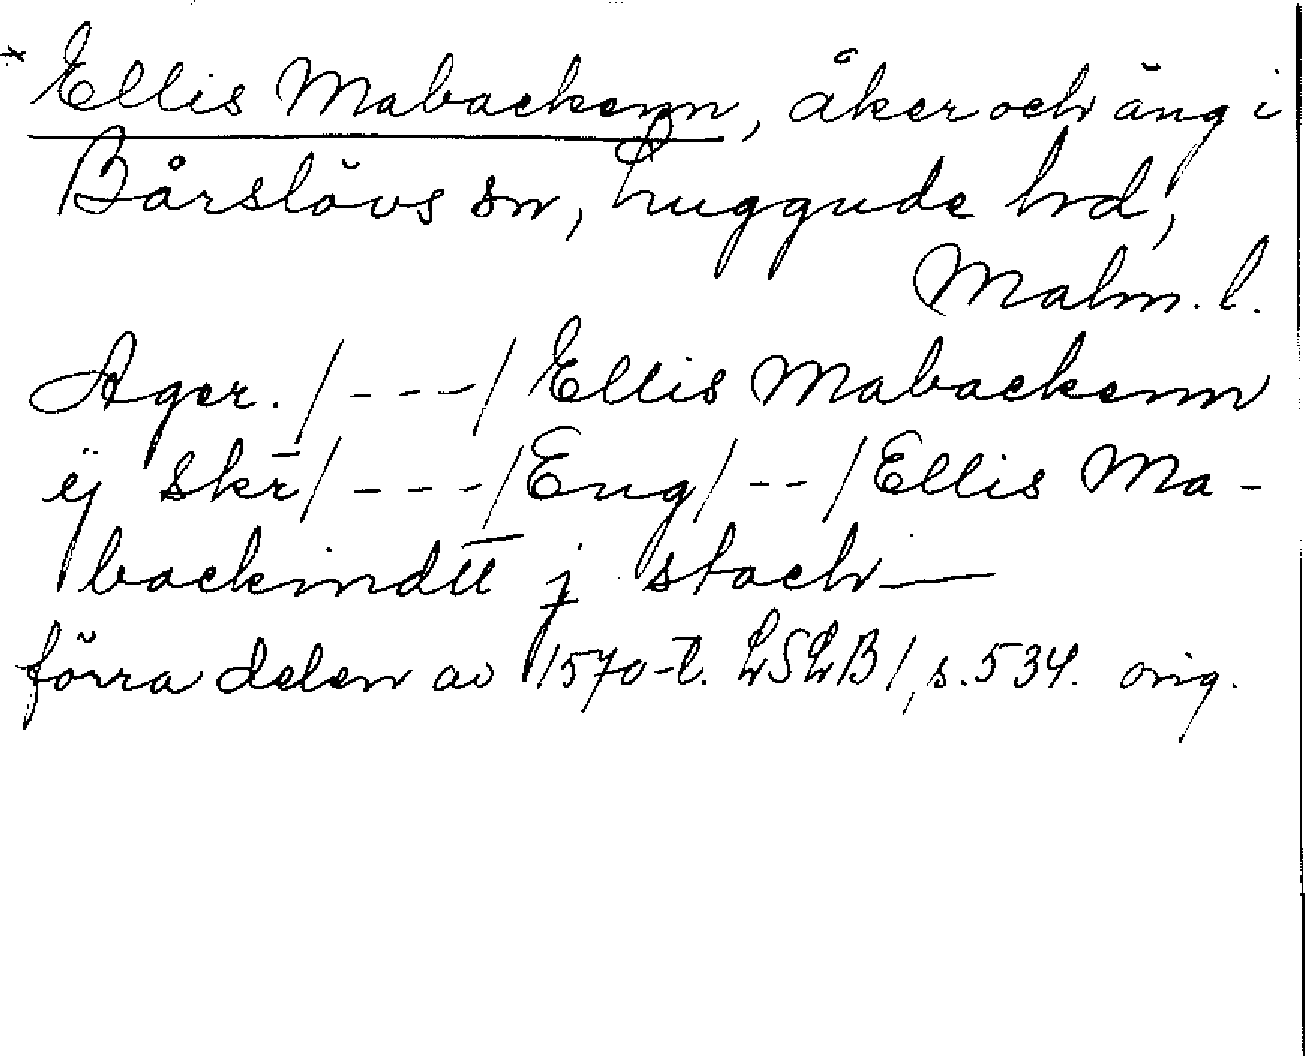 * Ellis Mabackenn, åker och äng i
Bårslövs sn, Luggude hd,
Malm. l.
Ager. /---/ Ellis Mabackenn
ij skr̄ /---/ Eng /--/ Ellis Ma-
backindtt j stach —
förra delen av 1570-t. LSLB 1, s. 534. orig.